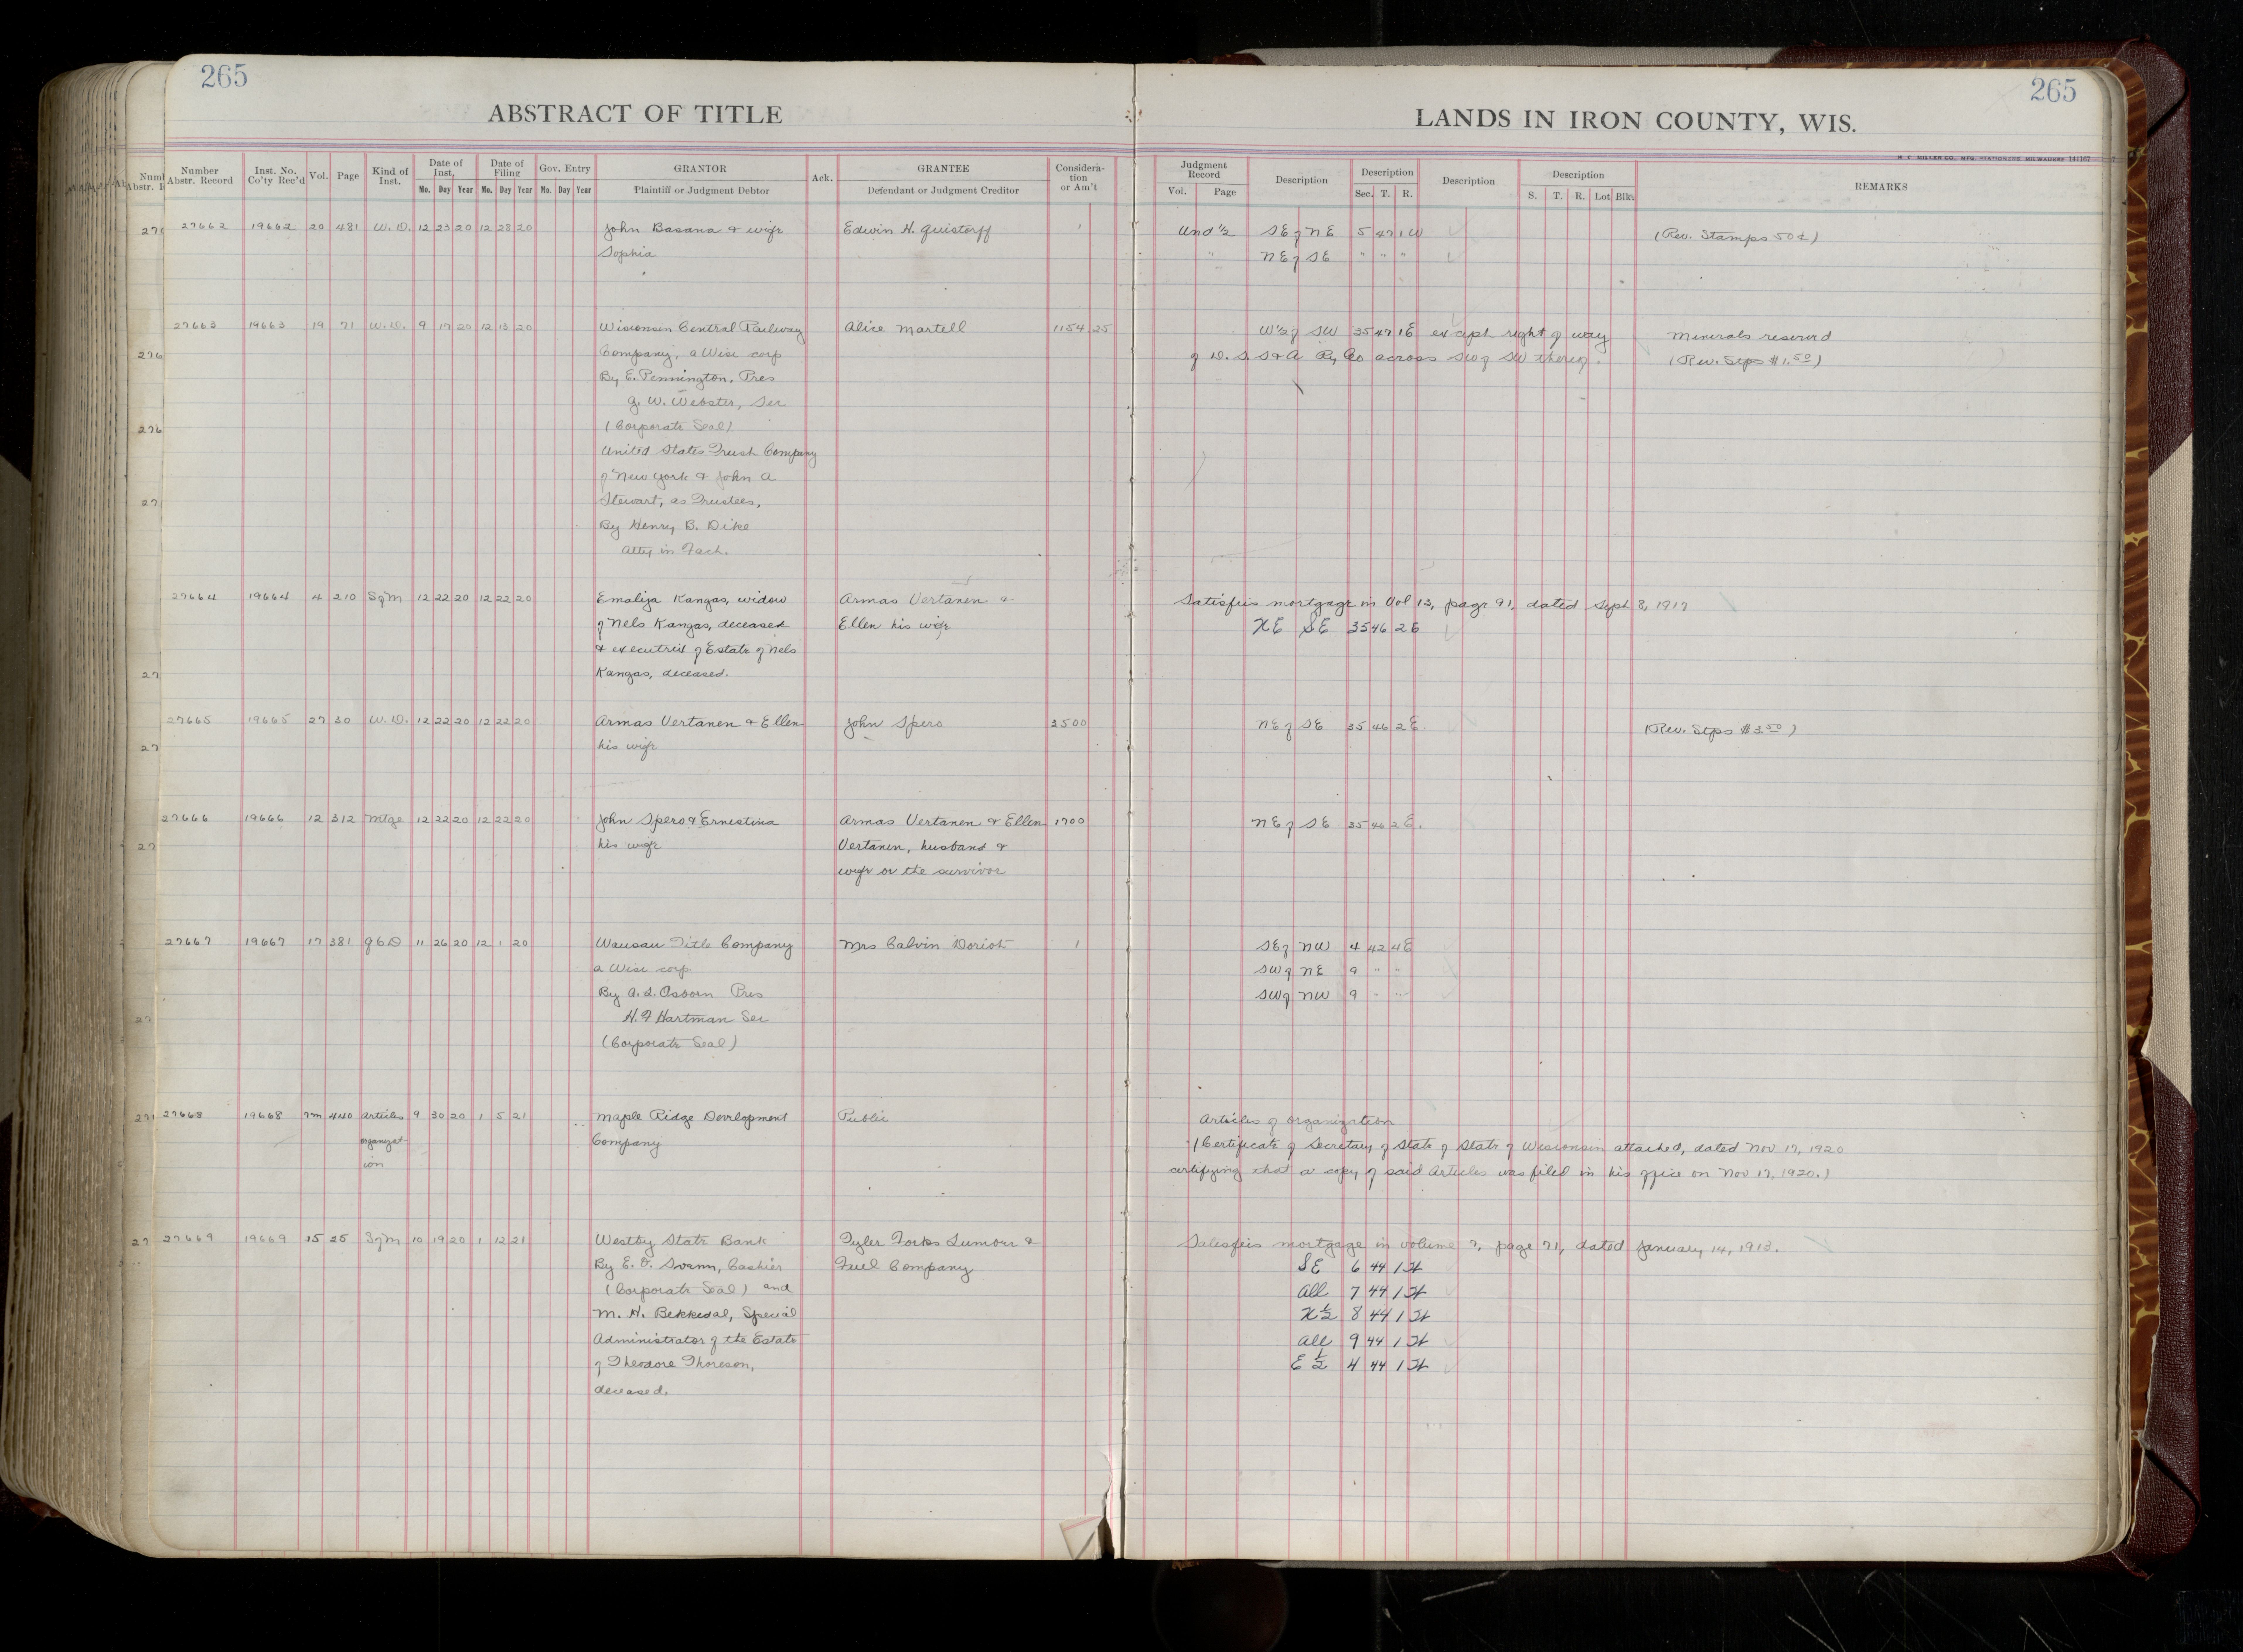 265
265
ABSTRACT OF TITLE
LANDS IN IRON COUNTY, WIS.
H. F. MILLER CO. MFG. STATIONERS MILWAUKEE 141167
Number Abstr. Record | Inst. No. Co'ty Rec'd | Vol. | Page | Kind of Inst. | Date of Inst. Mo. Day Year | Date of Filing Mo. Day Year | Gov. Entry Mo. Day Year | GRANTOR Plaintiff or Judgment Debtor | Ack. | GRANTEE Defendant or Judgment Creditor | Considera- tion or Am't | Judgment Record Vol. Page | Description | Description Sec. T. R. | Description | Description S. T. R. Lot Blk. | REMARKS
27662 19662 20 481 W. D. 12 23 20 12 23 20 John Basana & wife Edwin H. Quistorff 1 Und ½ SE of NE 5 47 1 W (Rev. Stamps 50¢)
Sophia " NE of SE " " "
27663 19663 19 71 W. D. 9 17 20 12 13 20 Wisconsin Central Railway Alice Martell 1154 25 W½ of SW 35 47 1 E except right of way Minerals reserved
Company, a Wisc corp of D. S. S & A Ry Co across SW of SW thereof. (Rev. Stps $1.50)
By E. Pennington, Pres
G. W. Webster, Sec
(Corporate Seal)
United States Trust Company
of New York & John A
Stewart, as Trustees,
By Henry B. Dike
Atty in Fact.
27664 19664 4 210 S of M 12 22 20 12 22 20 Emalija Kangas, widow Armas Vertanen & Satisfies mortgage in Vol 13, page 91, dated Sept 8, 1917
of Nels Kangas, deceased Ellen his wife NE SE 35 46 2 E
& executrix of Estate of Nels
Kangas, deceased.
27665 19665 27 30 W. D. 12 22 20 12 22 20 Armas Vertanen & Ellen John Spero 3500 NE of SE 35 46 2 E. (Rev. Stps $3.50)
his wife
27666 19666 12 312 Mtge 12 22 20 12 22 20 John Spero & Ernestina Armas Vertanen & Ellen 1700 NE of SE 35 46 2 E.
his wife Vertanen, husband &
wife or the survivor
27667 19667 17 381 Q C D 11 26 20 12 1 20 Wausau Title Company Mrs Calvin Doriot 1 SE of NW 4 42 4 E
a Wisc corp SW of NE 9 " "
By A. L. Osborn Pres SW of NW 9 " "
H. F Hartman Sec
(Corporate Seal)
27668 19668 7m 440 Articles 9 30 20 1 5 21 Maple Ridge Development Public Articles of Organization
organizat- Company (Certificate of Secretary of State of State of Wisconsin attached, dated Nov 17, 1920
ion certifying that a copy of said Articles was filed in his office on Nov 17, 1920.)
27669 19669 15 25 S of M 10 19 20 1 12 21 Westby State Bank Tyler Forks Lumber & Satisfies mortgage in volume 7, page 71, dated January 14, 1913.
By E. T. Svann, Cashier Fuel Company SE 6 44 1 W
(Corporate Seal) and All 7 44 1 W
M. H. Bekkedal, Special N½ 8 44 1 W
Administrator of the Estate All 9 44 1 W
of Theodore Thoreson, E ½ 4 44 1 W
deceased.